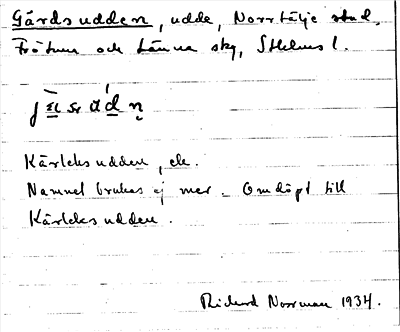 Gårdsudden, udde, Norrtälje stad,
Frötuna och Länna skg, Sthlms l.
Kärleksudden, ek.
Namnet brukas ej mer. Omdöpt till
Kärleksudden.
Richard Norrman 1934.